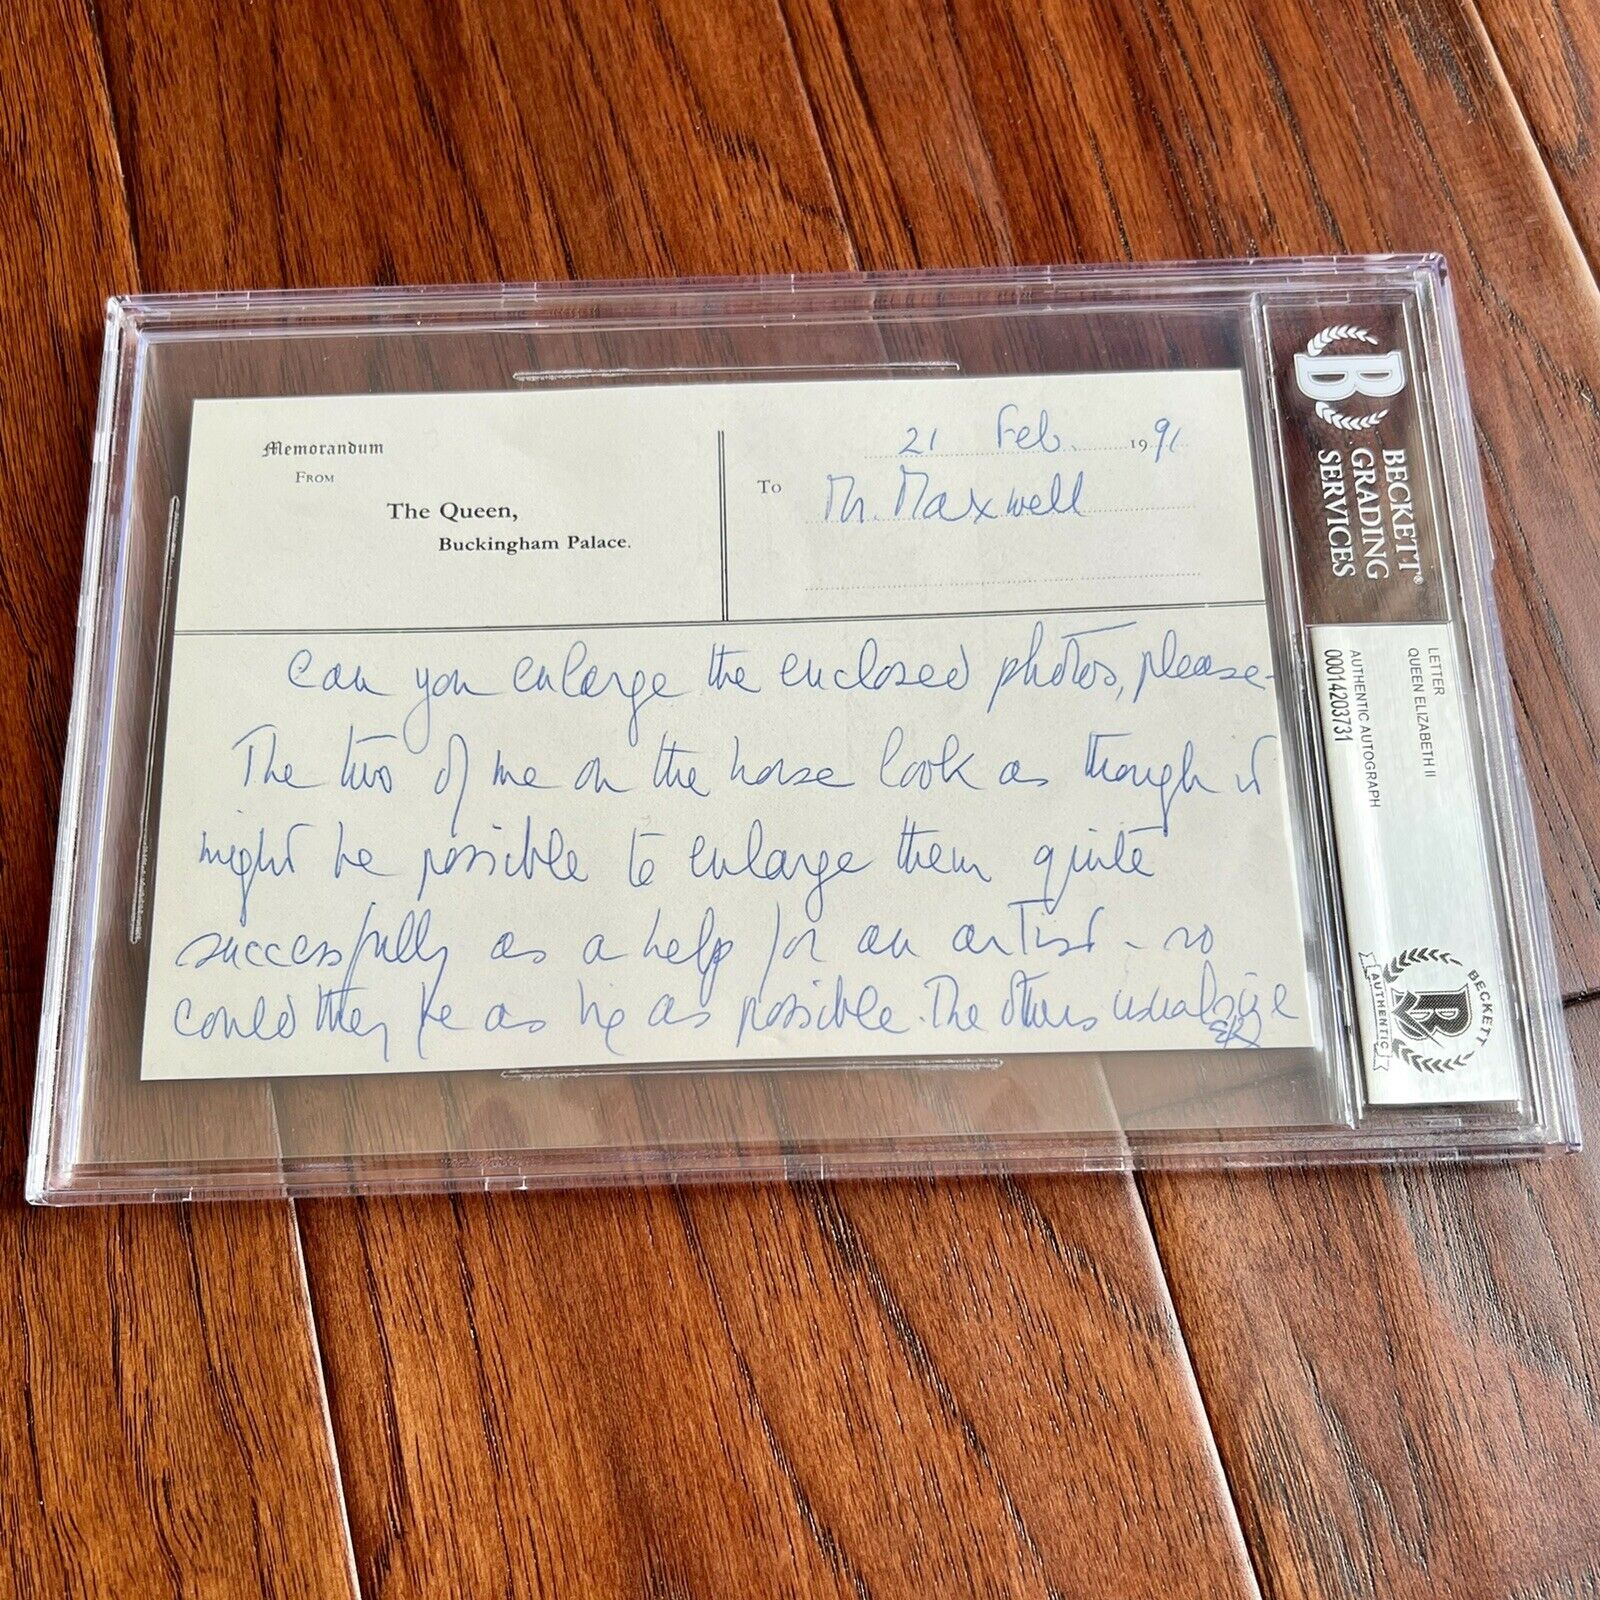 Memorandum
FROM
The Queen,
Buckingham Palace.
21 Feb. 1991
To Mr. Maxwell
Can you enlarge the enclosed photos, please -
The two of me on the horse look as though it
might be possible to enlarge them quite
successfully as a help for an artist - so
could they be as big as possible. The others usual size
ER
BECKETT®
GRADING
SERVICES
LETTER
QUEEN ELIZABETH II
AUTHENTIC AUTOGRAPH
00014203731
BECKETT
AUTHENTIC